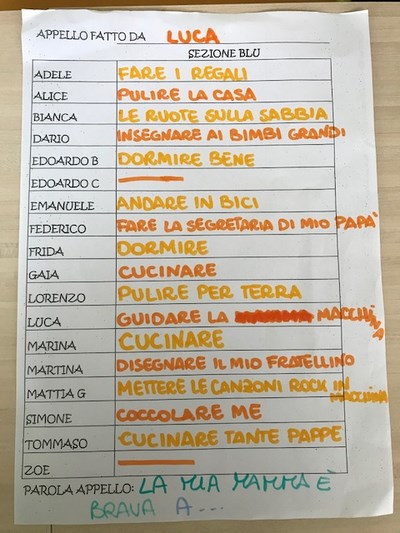 APPELLO FATTO DA LUCA
SEZIONE BLU
ADELE FARE I REGALI
ALICE PULIRE LA CASA
BIANCA LE RUOTE SULLA SABBIA
DARIO INSEGNARE AI BIMBI GRANDI
EDOARDO B DORMIRE BENE
EDOARDO C
EMANUELE ANDARE IN BICI
FEDERICO FARE LA SEGRETARIA DI MIO PAPA'
FRIDA DORMIRE
GAIA CUCINARE
LORENZO PULIRE PER TERRA
LUCA GUIDARE LA MACCHINA
MARINA CUCINARE
MARTINA DISEGNARE IL MIO FRATELLINO
MATTIA G METTERE LE CANZONI ROCK IN MACCHINA
SIMONE COCCOLARE ME
TOMMASO CUCINARE TANTE PAPPE
ZOE
PAROLA APPELLO: LA MIA MAMMA È
BRAVA A...